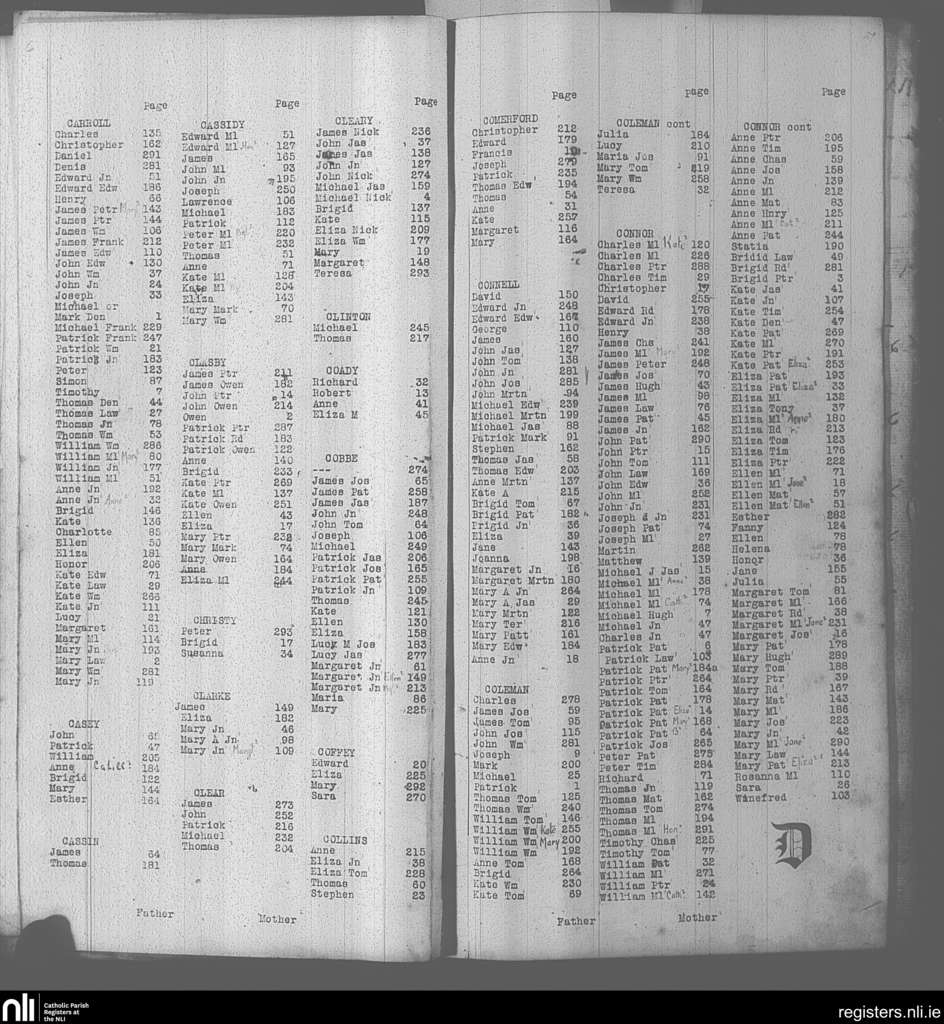 Page
CARROLL
Charles 135
Christopher 162
Daniel 291
Denis 281
Edward Jn 51
Edward Edw 186
Henry 66
James Petr Mary 143
James Ptr 144
James Wm 106
James Frank 212
James Edw 110
John Edw 130
John Wm 37
John Jn 24
Joseph 33
Michael or
Mark Den 1
Michael Frank 229
Patrick Frank 247
Patrick Wm 21
Patrick Jn 183
Peter 123
Simon 87
Timothy 7
Thomas Den 44
Thomas Law 27
Thomas Jn 78
Thomas Wm 53
William Wm 286
William Ml Mary 80
William Jn 177
William Ml 51
Anne Jn 192
Anne Jn Anne 32
Brigid 146
Kate 136
Charlotte 85
Ellen 50
Eliza 181
Honor 206
Kate Edw 71
Kate Law 29
Kate Wm 266
Kate Jn 111
Lucy 21
Margaret 161
Mary Ml 114
Mary Jn 193
Mary Law 2
Mary Wm 281
Mary Jn 119
CASEY
John
Patrick 47
William 205
Anne 184
Brigid 122
Mary 144
Esther 164
CASSIN
James 64
Thomas 181
Page
CASSIDY
Edward Ml 51
Edward Ml 127
James 165
John Ml 93
John Jn 195
Joseph 250
Lawrence 106
Michael 183
Patrick 112
Peter Ml 220
Peter Ml 232
Thomas 51
Anne 71
Kate Ml 128
Kate Ml 204
Eliza 143
Mary Mark 70
Mary Wm 281
CLASBY
James Ptr 211
James Owen 182
John Ptr 14
John Owen 214
Owen 2
Patrick Ptr 287
Patrick Rd 183
Patrick Owen 122
Anne 140
Brigid 233
Kate Ptr 269
Kate Ml 137
Kate Owen 251
Ellen 43
Eliza 17
Mary Ptr 232
Mary Mark 74
Mary Owen 164
Anna 184
Eliza Ml 244
CHRISTY
Peter 293
Brigid 17
Susanna 34
CLARKE
James 149
Eliza 182
Mary Jn 46
Mary A Jn 98
Mary Jn 109
CLEAR
James 273
John 252
Patrick 216
Michael 232
Thomas 204
Page
CLEARY
James Nick 236
John Jas 37
James Jas 138
John Jn 127
John Nick 274
Michael Jas 159
Michael Nick 4
Brigid 137
Kate 115
Eliza Nick 209
Eliza Wm 177
Mary 19
Margaret 148
Teresa 293
CLINTON
Michael 245
Thomas 217
COADY
Richard 32
Robert 13
Anne 41
Eliza M 45
COBBE
--- 274
James Jos 65
James Pat 258
James Jas 187
John Jn 248
John Tom 64
Joseph 106
Michael 249
Patrick Jas 206
Patrick Jos 165
Patrick Pat 255
Patrick Jn 109
Thomas 245
Kate 121
Ellen 130
Eliza 158
Lucy M Jos 183
Lucy Jas 277
Margaret Jn 61
Margaret Jn Ellen 149
Margaret Jn 213
Maria 86
Mary 225
COFFEY
Edward 20
Eliza 225
Mary 292
Sara 270
COLLINS
Anne 215
Eliza Jn 38
Eliza Tom 228
Thomas 60
Stephen 23
Father
Mother
Page
COMERFORD
Christopher 212
Edward 179
Francis
Joseph 279
Patrick 235
Thomas Edw 194
Thomas 54
Anne 31
Kate 257
Margaret 116
Mary 164
CONNELL
David 150
Edward Jn 248
Edward Edw 167
George 110
James 160
John Jas 127
John Tom 138
John Jn 281
John Jos 285
John Mrtn 94
Michael Edw 239
Michael Mrtn 199
Michael Jas 88
Patrick Mark 91
Stephen 162
Thomas Jas 58
Thomas Edw 203
Anne Mrtn 137
Kate A 215
Brigid Tom 67
Brigid Pat 182
Prigid Jn 36
Eliza 39
Jane 143
Joanna 198
Margaret Jn 16
Margaret Mrtn 180
Mary A Jn 264
Mary A Jas 29
Mary Mrtn 122
Mary Ter 216
Mary Patt 161
Mary Edw 184
Anne Jn 18
COLEMAN
Charles 278
James Jos 59
James Tom 95
John Jos 115
John Wm 281
Joseph 9
Mark 200
Michael 25
Patrick 1
Thomas Tom 125
Thomas Wm 240
William Tom 146
William Wm Kate 255
William Wm Mary 200
William Wm 192
Anne Tom 168
Brigid 264
Kate Wm 230
Kate Tom 69
Page
COLEMAN cont
Julia 184
Lucy 210
Maria Jos 91
Mary Tom 219
Mary Wm 258
Teresa 32
CONNOR
Charles Ml Kate 120
Charles Ml 226
Charles Ptr 288
Charles Tim 29
Christopher 17
David 255
Edward Rd 178
Edward Jn 238
Henry 38
James Chs 241
James Ml 192
James Peter 248
James Jos 70
James Hugh 43
James Ml 98
James Law 76
James Pat 45
James Jn 162
John Pat 290
John Ptr 15
John Tom 111
John Law 169
John Edw 36
John Ml 252
John Jn 231
Joseph & Jn 231
Joseph Pat 74
Joseph Ml 27
Martin 262
Matthew 139
Michael J Jas 15
Michael Ml Anne 38
Michael Ml 178
Michael Ml Cath 74
Michael Hugh 7
Michael Jn 47
Charles Jn 47
Patrick Pat 6
Patrick Law 103
Patrick Pat Mary 184a
Patrick Ptr 264
Patrick Tom 164
Patrick Pat 178
Patrick Pat Eliza 14
Patrick Pat Mary 168
Patrick Pat 64
Patrick Jos 265
Peter Pat 273
Peter Tim 284
Richard 71
Thomas Jn 119
Thomas Mat 162
Thomas Tom 274
Thomas Ml 194
Thomas Ml Hon 291
Timothy Chas 225
Timothy Tom 77
William Pat 32
William Ml 271
William Ptr 24
William Ml Cath 142
Page
CONNOR cont
Anne Ptr 206
Anne Tim 195
Anne Chas 59
Anne Jos 158
Anne Jn 139
Anne Ml 212
Anne Mat 83
Anne Hnry 125
Anne Ml 211
Anne Pat 244
Statia 190
Bridid Law 49
Brigid Rd 281
Brigid Ptr 3
Kate Jas 41
Kate Jn 107
Kate Tim 254
Kate Den 47
Kate Pat 269
Kate Ml 270
Kate Ptr 191
Kate Pat Eliza 253
Eliza Pat 193
Eliza Pat Eliza 33
Eliza Ml 132
Eliza Tony 37
Eliza Ml Anne 180
Eliza Rd 213
Eliza Tom 123
Eliza Tim 176
Eliza Ptr 222
Ellen Ml 71
Ellen Ml Jane 18
Ellen Mat 57
Ellen Mat Ellen 51
Esther 282
Fanny 124
Ellen 78
Helena 78
Honor 36
Jane 155
Julia 55
Margaret Tom 81
Margaret Ml 166
Margaret Rd 38
Margaret Ml Jane 231
Margaret Jos 16
Mary Pat 178
Mary Hugh 289
Mary Tom 188
Mary Ptr 39
Mary Rd 167
Mary Mat 143
Mary Ml 186
Mary Jos 223
Mary Jn 42
Mary Ml Jane 290
Mary Law 144
Mary Pat Eliza 213
Rosanna Ml 110
Sara 26
Winefred 103
D
Father
Mother
nli
Catholic Parish
Registers at
the NLI
registers.nli.ie